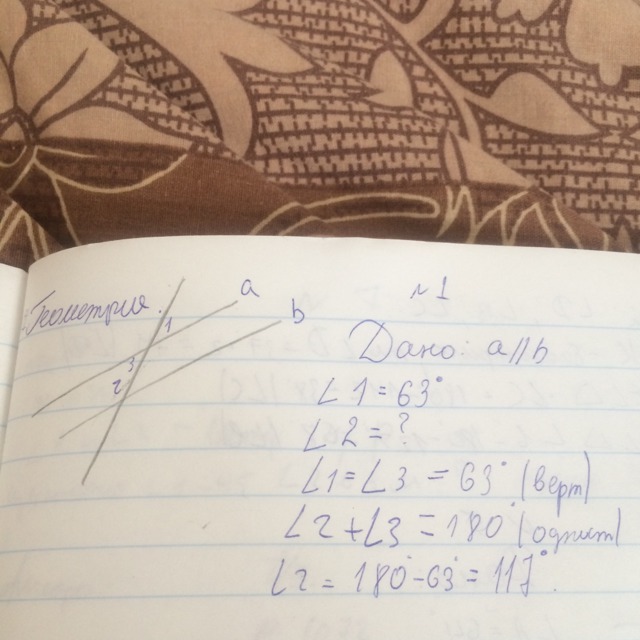 Геометрия.
a
b
1
3
2
№1
Дано: a∥b
∠1=63°
∠2=?
∠1=∠3=63° (верт)
∠2+∠3=180° (однст)
∠2=180°-63°=117°.